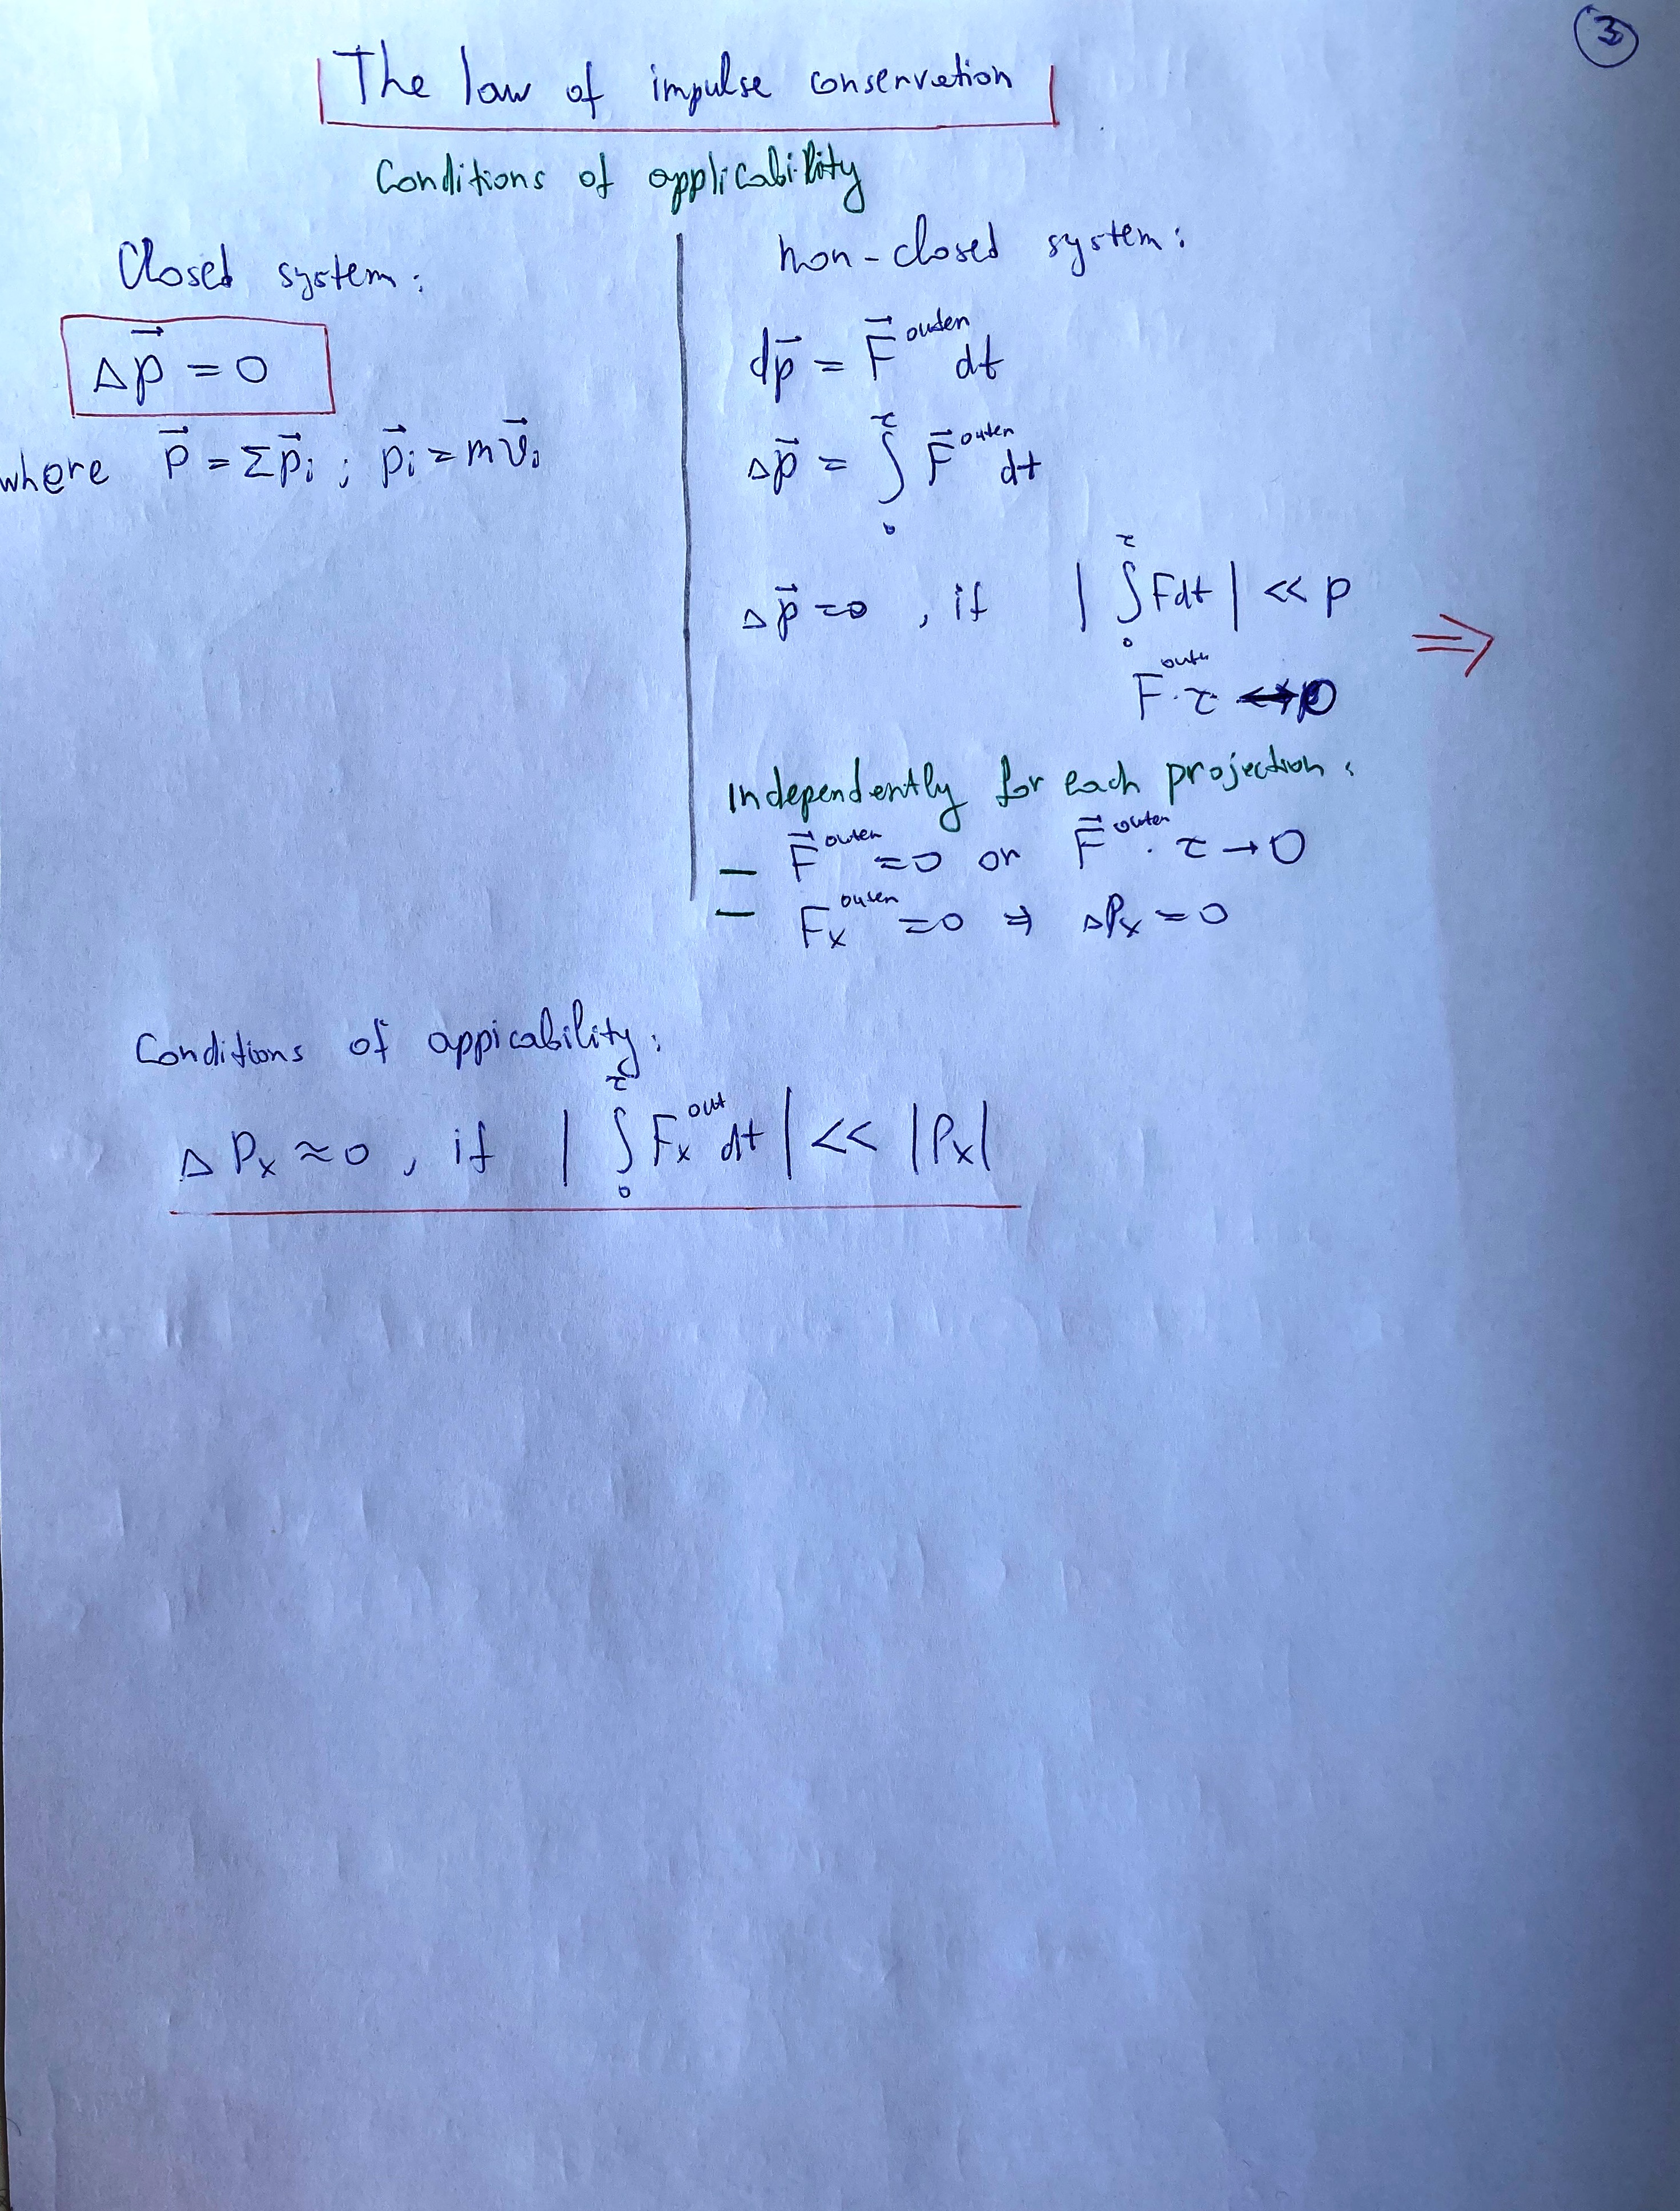 3
The law of impulse conservation
Conditions of applicability
Closed system:
Δp⃗ = 0
where p⃗ = Σp⃗i ; p⃗i = mv⃗i
non-closed system:
dp⃗ = F⃗^outer dt
Δp⃗ = ∫₀^τ F⃗^outer dt
Δp⃗ = 0 , if | ∫₀^τ Fdt | << p
F^outer · τ → 0
⇒
Independently for each projection:
— F⃗^outer = 0 or F⃗^outer · τ → 0
— Fx^outer = 0 ⇒ Δpx = 0
Conditions of appicability:
Δ Px ≈ 0 , if | ∫₀^τ Fx^out dt | << |Px|